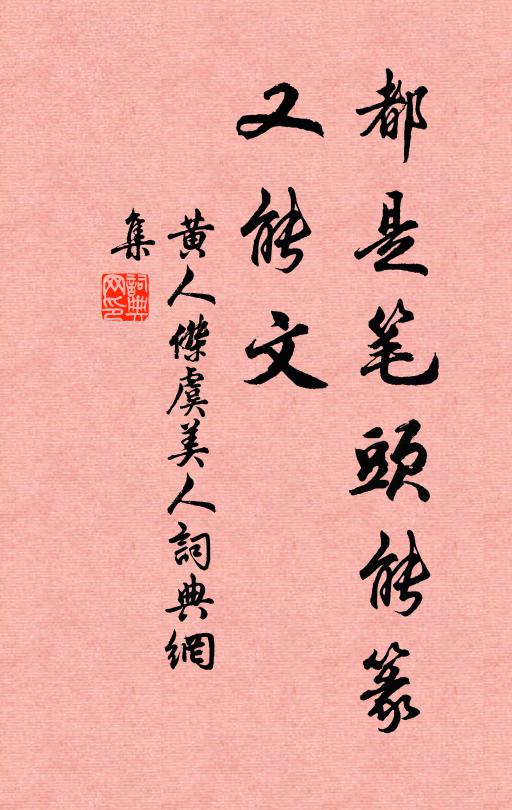 都是笔頭能篆
又能文
黄人傑虞美人詞典網
集
詞典
网印